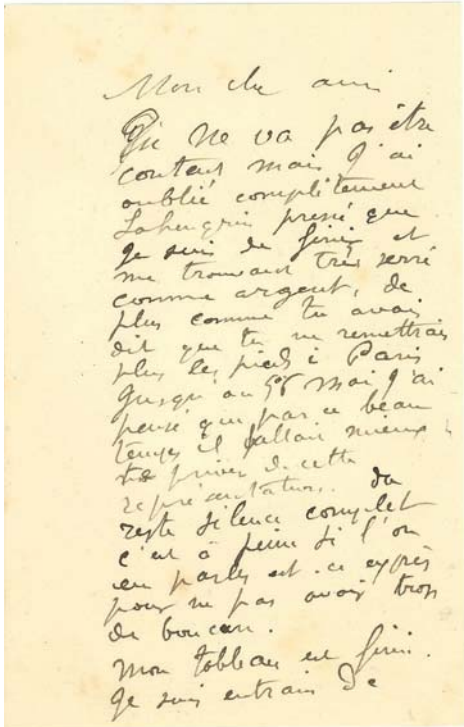 Mon cher ami
Tu ne va pas être
content mais j'ai
oublié complètement
Lohengrin pressé que
je suis de finir et
me trouvant très serré
comme argent, de
plus comme tu avais
dit que tu ne remettrais
plus les pieds à Paris
jusqu'au mai j'ai
pensé que par ce beau
temps il fallait mieux
se priver de cette
représentation. du
reste silence complet
c'est à peine si l'on
en parle est-ce exprès
pour ne pas avoir trop
de boucan.
Mon tableau est fini.
Je suis entrain de